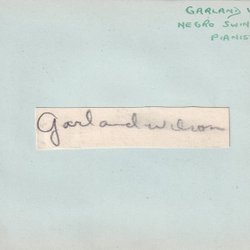 GARLAND W
NEGRO SWIN
PIANIS
Garland Wilson